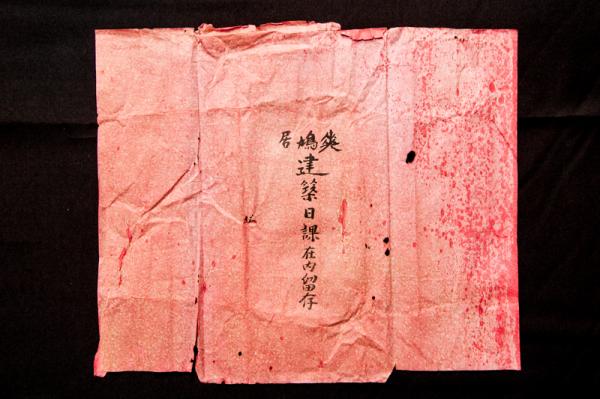 爽鳩居
建築日課在內留存